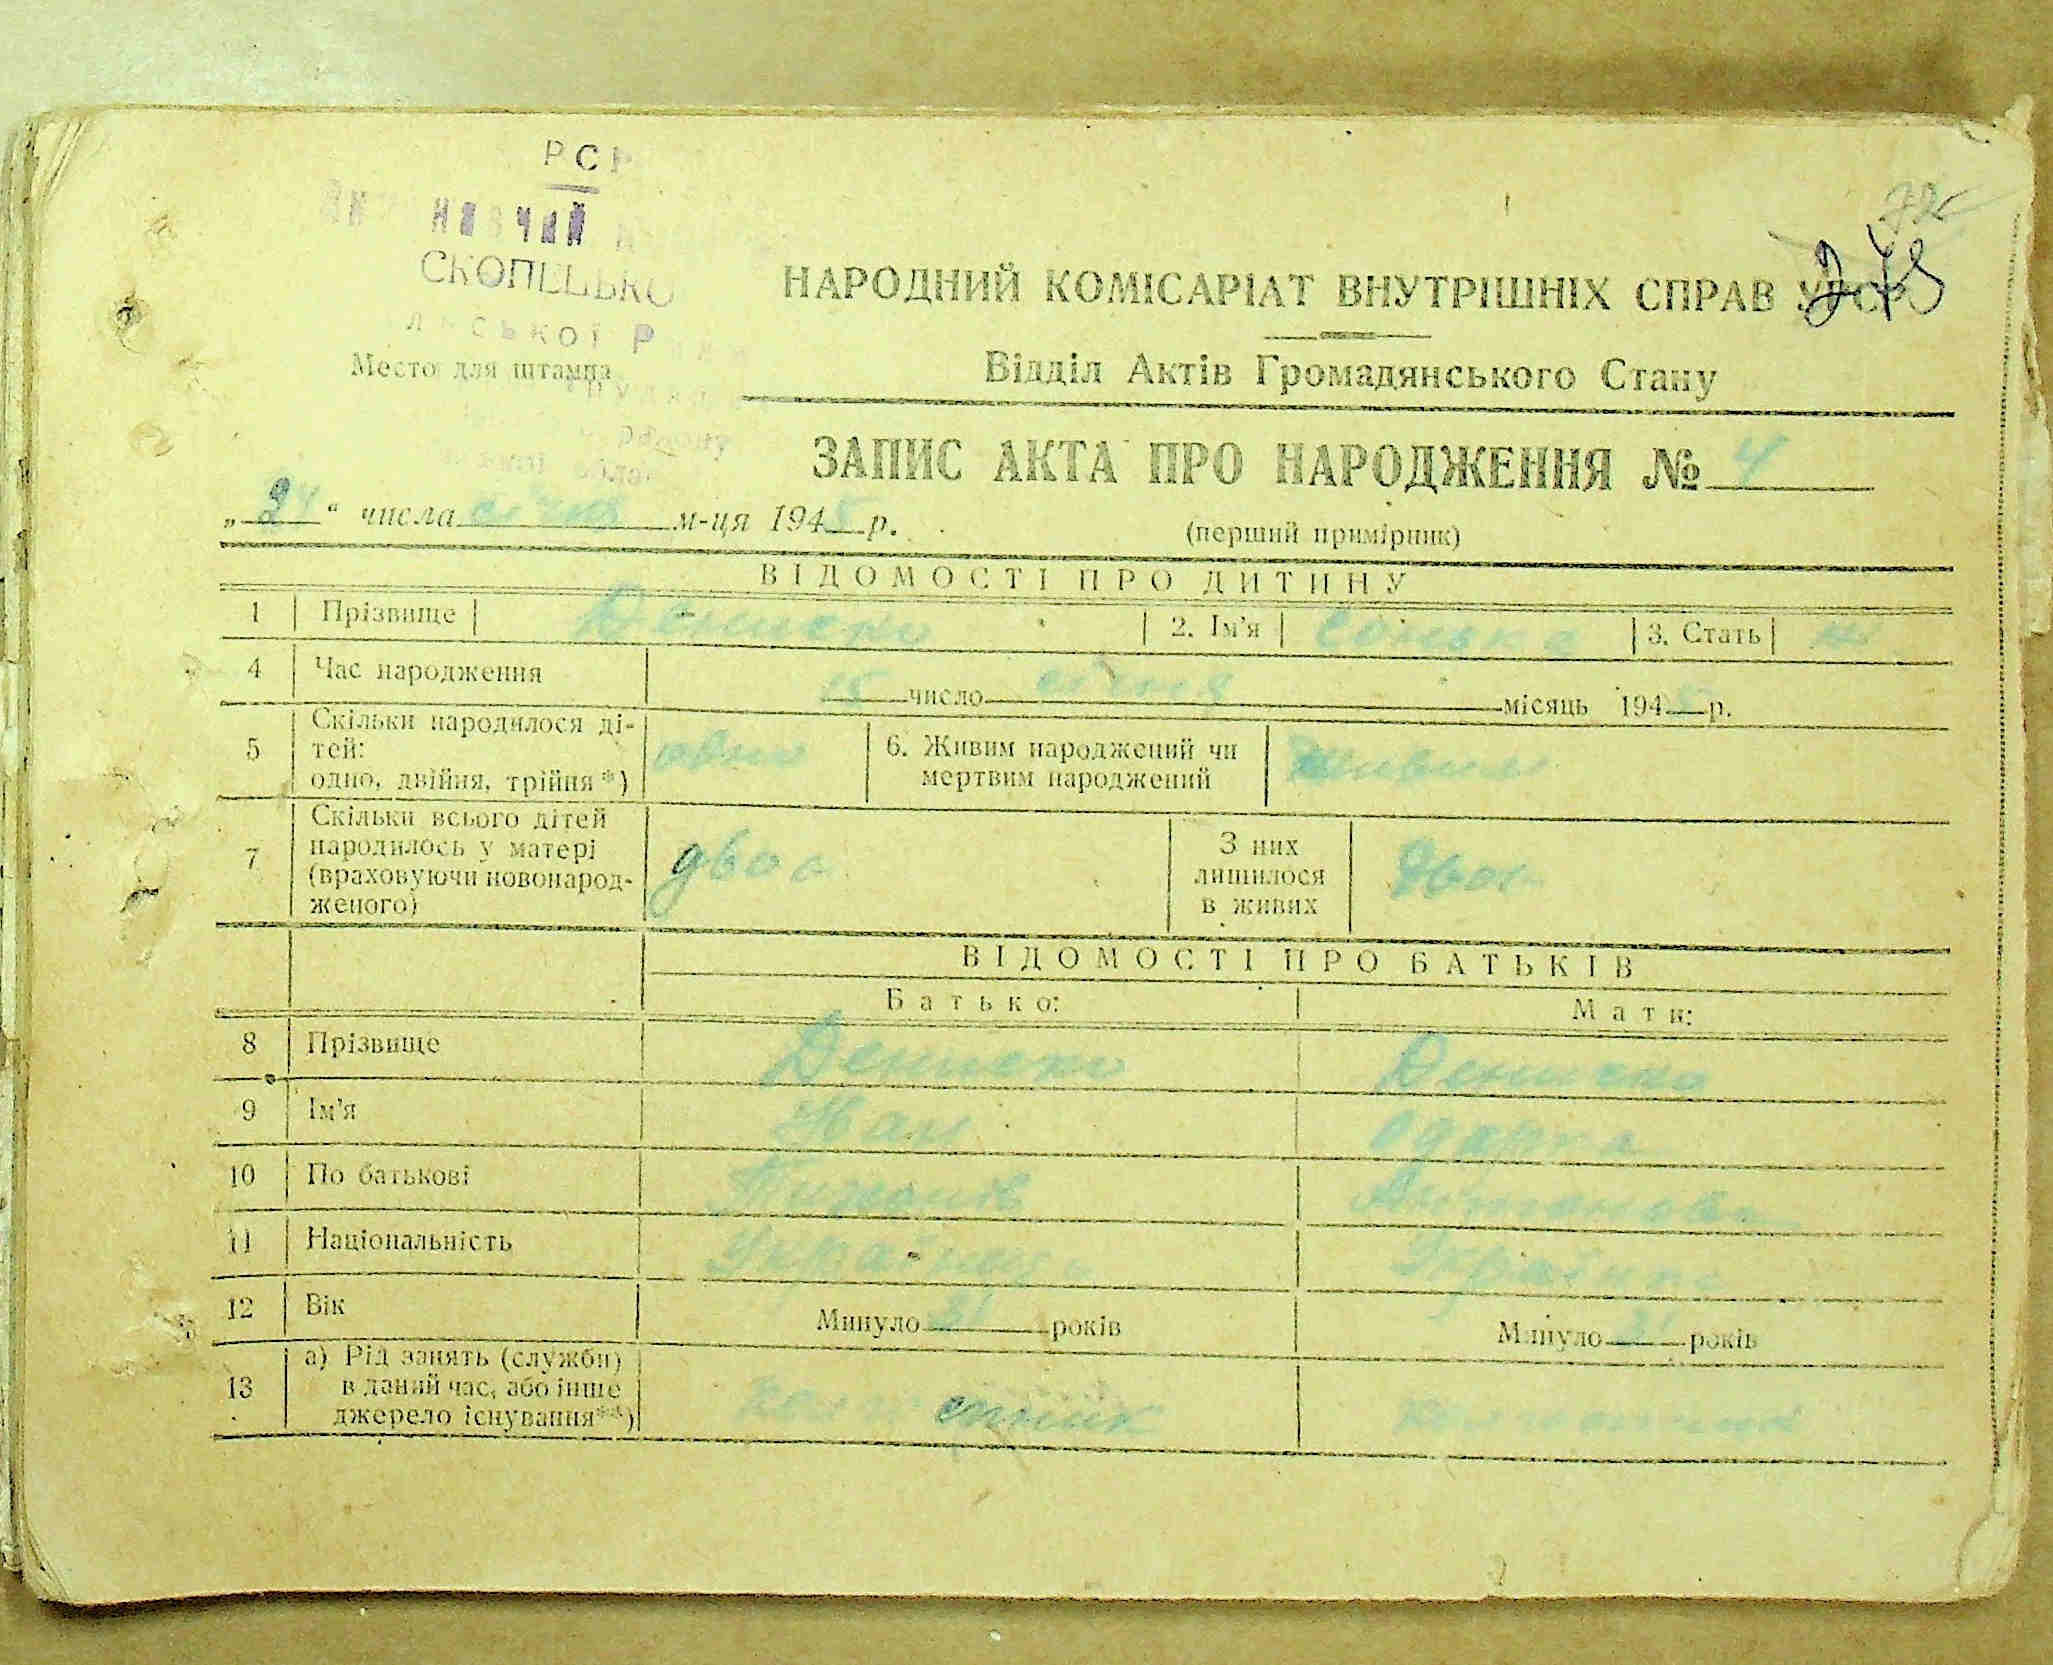 РСР
СКОПЕЦЬКО
НАРОДНИЙ КОМІСАРІАТ ВНУТРІШНІХ СПРАВ УРСР
Місто для штампа
Відділ Актів Громадянського Стану
ЗАПИС АКТА ПРО НАРОДЖЕННЯ № 4
„24“ числа січня м-ця 1945 р.
(перший примірник)
ВІДОМОСТІ ПРО ДИТИНУ
1 Прізвище Дениско 2. Ім'я Сонька 3. Стать ж
4 Час народження 15 число січня місяць 1945 р.
Скільки народилося ді-
5 тей: одно 6. Живим народжений чи Живим
одно, двійня, трійня *) мертвим народжений
Скільки всього дітей
7 народилось у матері двоє З них двоє
(враховуючи новонарод- лишилося
женого) в живих
ВІДОМОСТІ ПРО БАТЬКІВ
Батько: Мати:
8 Прізвище Дениско Дениско
9 Ім'я Іван Одарка
10 По батькові Антонова
11 Національність Українец Українка
12 Вік Минуло 31 років Минуло 31 років
а) Рід занять (служби)
13 в даний час, або інше колгоспник колгоспник
джерело існування**)